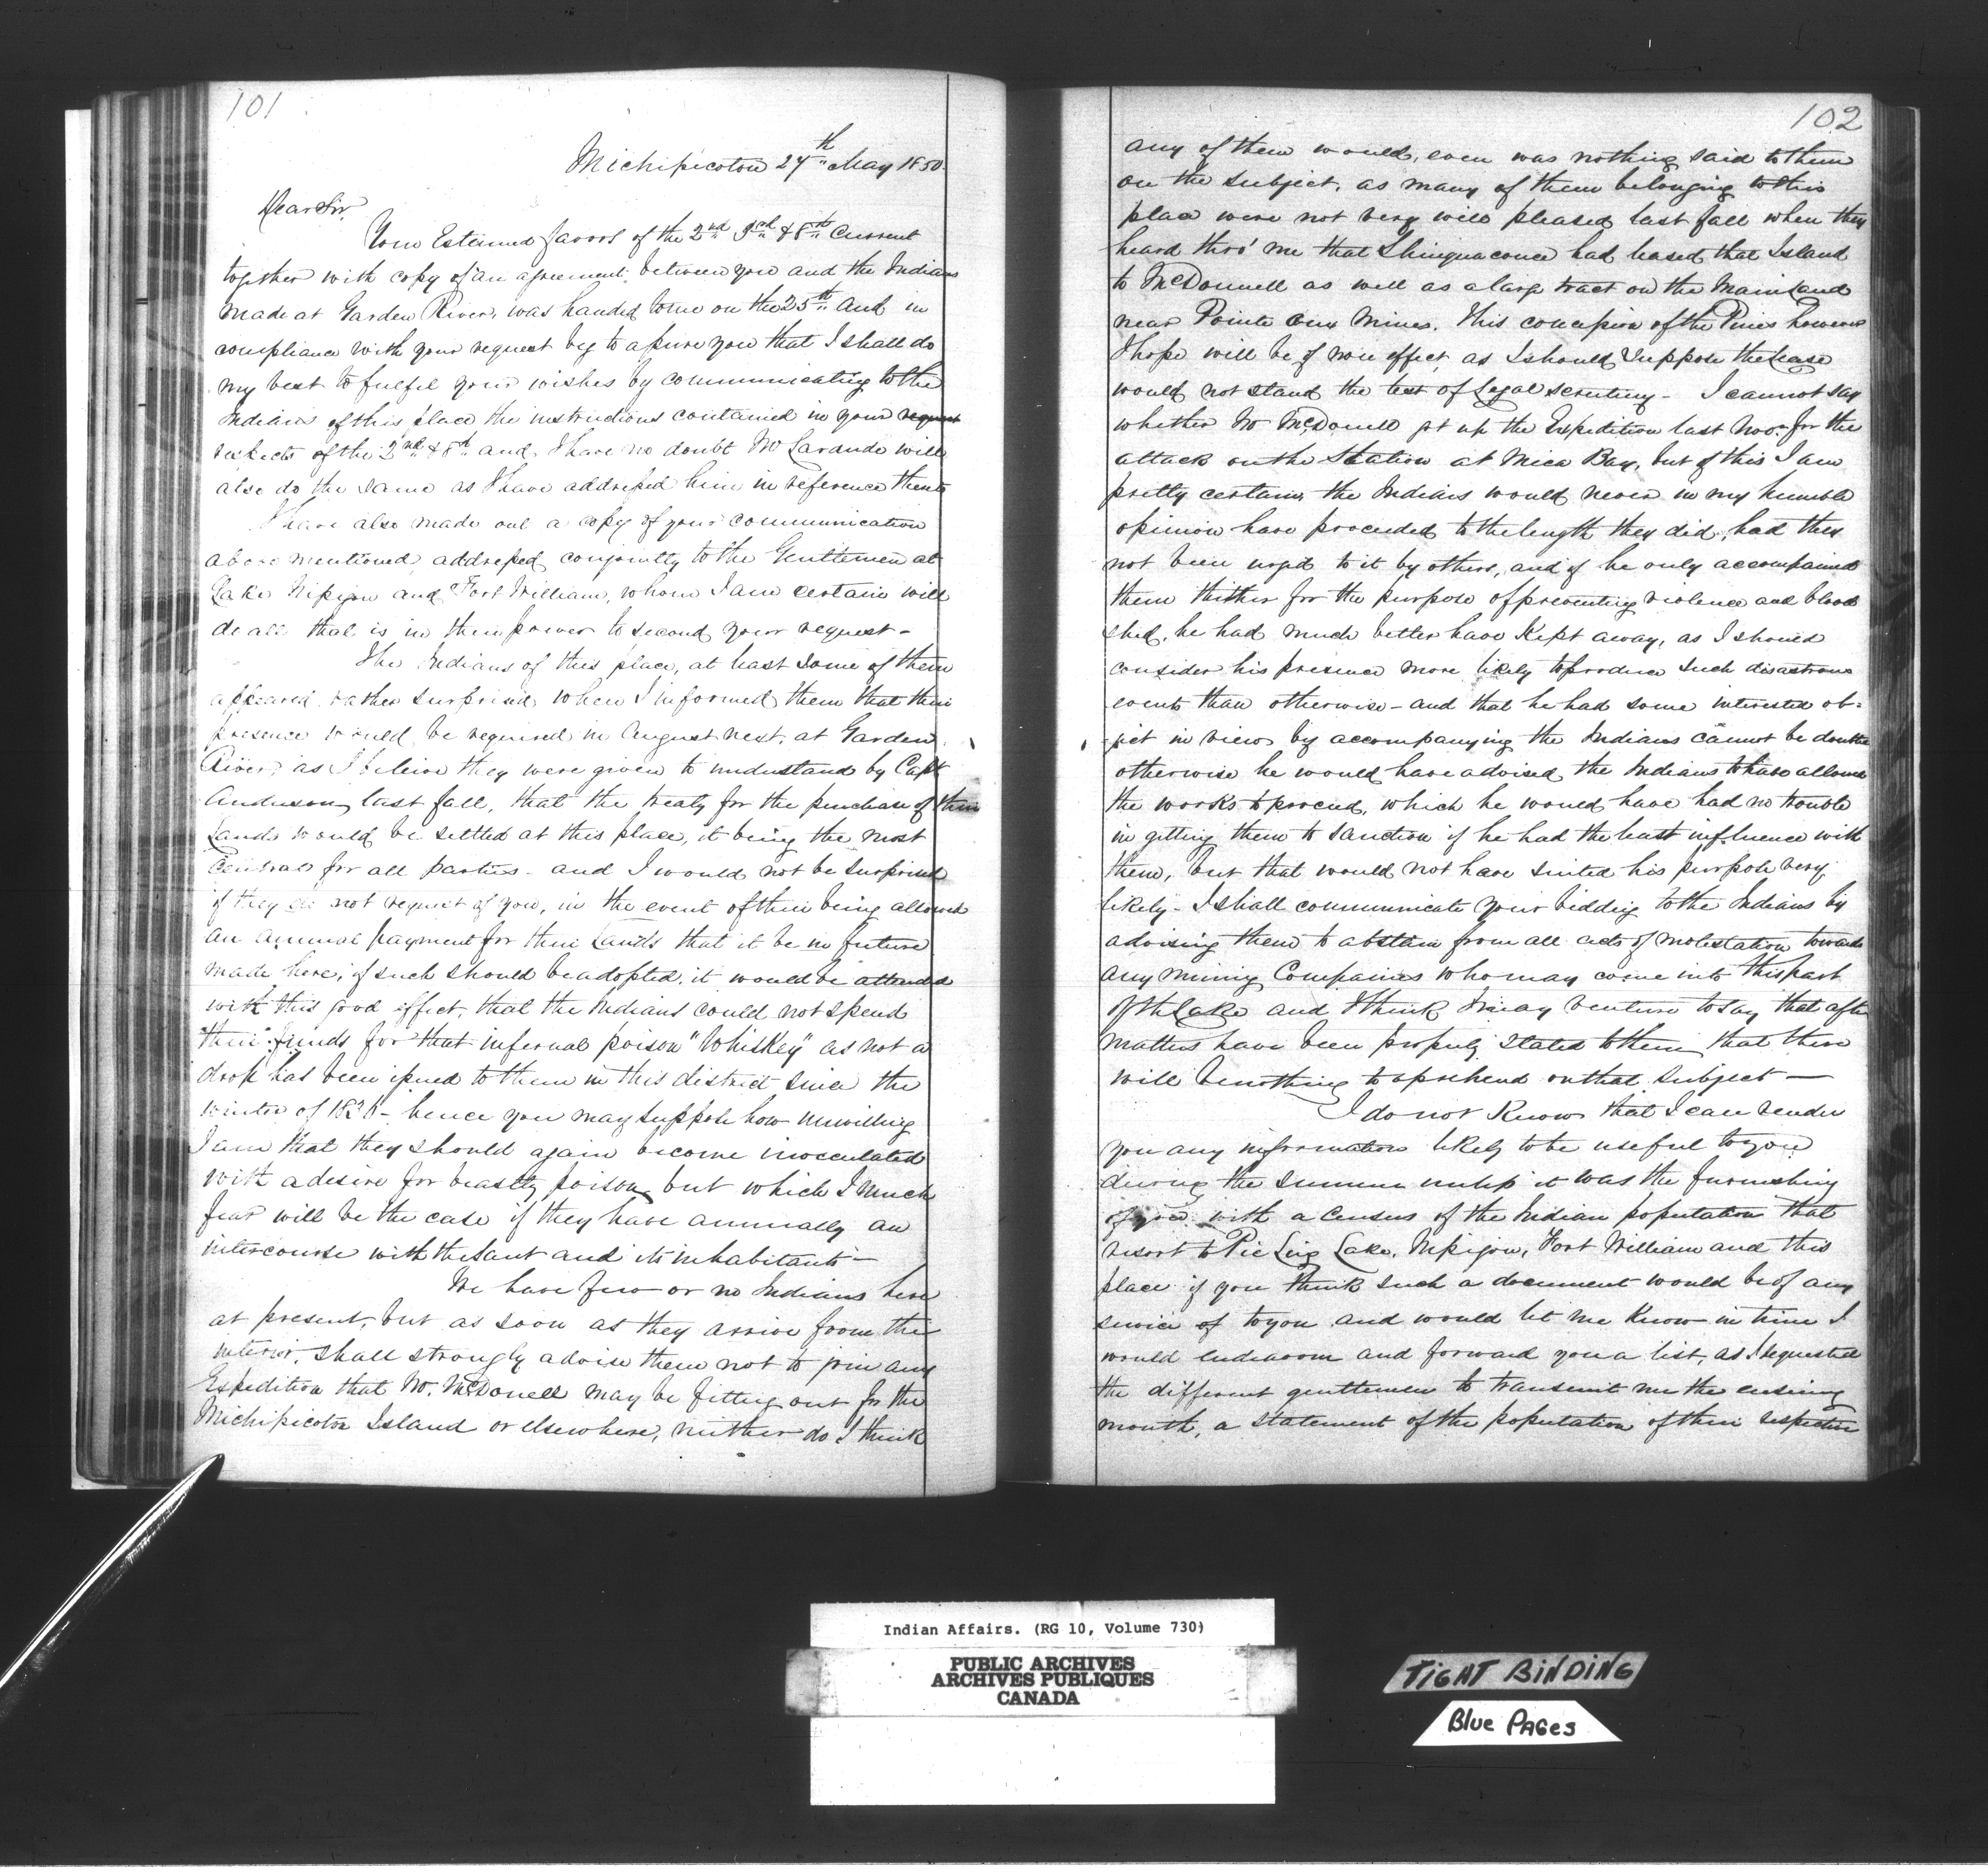 101
Michipicoton 27th May 1850.
Dear Sir,
Your Esteemed favors of the 2nd 5th & 8th Current
together with copy of an agreement between you and the Indians
made at Garden River, was handed to me on the 25th and in
compliance with your request beg to assure you that I shall do
my best to fulfil your wishes by communicating to the
Indians of this place the instructions contained in your request
respects of the 2nd & 8th and I have no doubt Mr Larande will
also do the same as I have addressed him in reference thereto
I have also made out a copy of your communication
above mentioned addressed conjointly to the Gentlemen at
Lake Nipigon and Fort William, whom I am certain will
do all that is in their power to second your request -
The Indians of this place, at least some of them
appeared rather surprised when I informed them that their
presence would be required in August next, at Garden
River, as I beleive they were given to understand by Capt
Anderson last fall, that the treaty for the purchase of their
Lands would be settled at this place, it being the most
Central for all parties - and I would not be surprised
if they do not request of you, in the event of their being allowed
an annual payment for their Lands that it be in future
made here, if such should be adopted, it would be attended
with this good effect, that the Indians could not spend
their funds for that infernal poison "Whiskey" as not a
drop has been issued to them in this district since the
winter of 1826 - hence you may suppose how unwilling
I am that they should again become innoculated
with a desire for beastly poison, but which I much
fear will be the case if they have annually an
intercourse with the Saut and its inhabitants -
We have few or no Indians here
at present, but as soon as they arrive from the
interior, shall strongly advise them not to join any
Expedition that Mr. McDonell may be fitting out for the
Michipicoton Island or elsewhere, neither do I think
102
any of them would, even was nothing said to them
on the subject, as many of them belonging to this
place were not very well pleased last fall when they
heard thro' me that Shinguaconce had leased that Island
to McDonnell as well as a large tract on the Mainland
near Pointe aux Mines. This concession of the Pines however
I hope will be of non effect, as I should suppose the lease
would not stand the test of Legal scrutiny - I cannot say
whether Mr McDonell got up the Expedition last Novr for the
attack on the Station at Mica Bay, but of this I am
pretty certain, the Indians would never in my humble
opinion have proceeded to the length they did, had they
not been urged to it by others, and if he only accompanied
them thither for the purpose of preventing violence and blood
shed, he had much better have kept away, as I should
consider his presence more likely to produce such disastrous
events than otherwise - and that he had some interested ob=
-ject in view by accompanying the Indians cannot be doubted
otherwise he would have advised the Indians to have allowed
the works to proceed, which he would have had no trouble
in getting them to sanction if he had the least influence with
them, but that would not have suited his purpose very
likely - I shall communicate your bidding to the Indians by
advising them to abstain from all acts of molestation towards
any mining Companies who may come into this part
of the Lake and I think I may venture to say that after
matters have been properly stated to them, that there
will be nothing to aprehend on that subject -
I do not know that I can render
you any information likely to be useful to you
during the summer unless it was the furnishing
of you with a census of the Indian population that
resort to Pic Long Lake, Nipigon, Fort William and this
place if you think such a document would be of any
service of to you and would let me know in time I
would endeavour and forward you a list, as I requested
the different gentlemen to transmit me the ensuing
month, a statement of the population of their respective
Indian Affairs. (RG 10, Volume 730)
PUBLIC ARCHIVES
ARCHIVES PUBLIQUES
CANADA
TIGHT BINDING
Blue PAGes